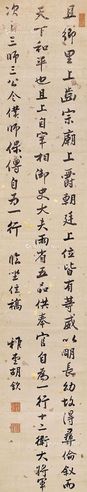 且鄉里上齒宗廟上爵朝廷上位皆有等威以明長幼故得彝倫敘而
天下和平也且上自宰相御史大夫兩省五品供奉官自為一行十二衛大將軍
次之三師三公令僕師保傅自為一行 臨坐位稿 胡欽